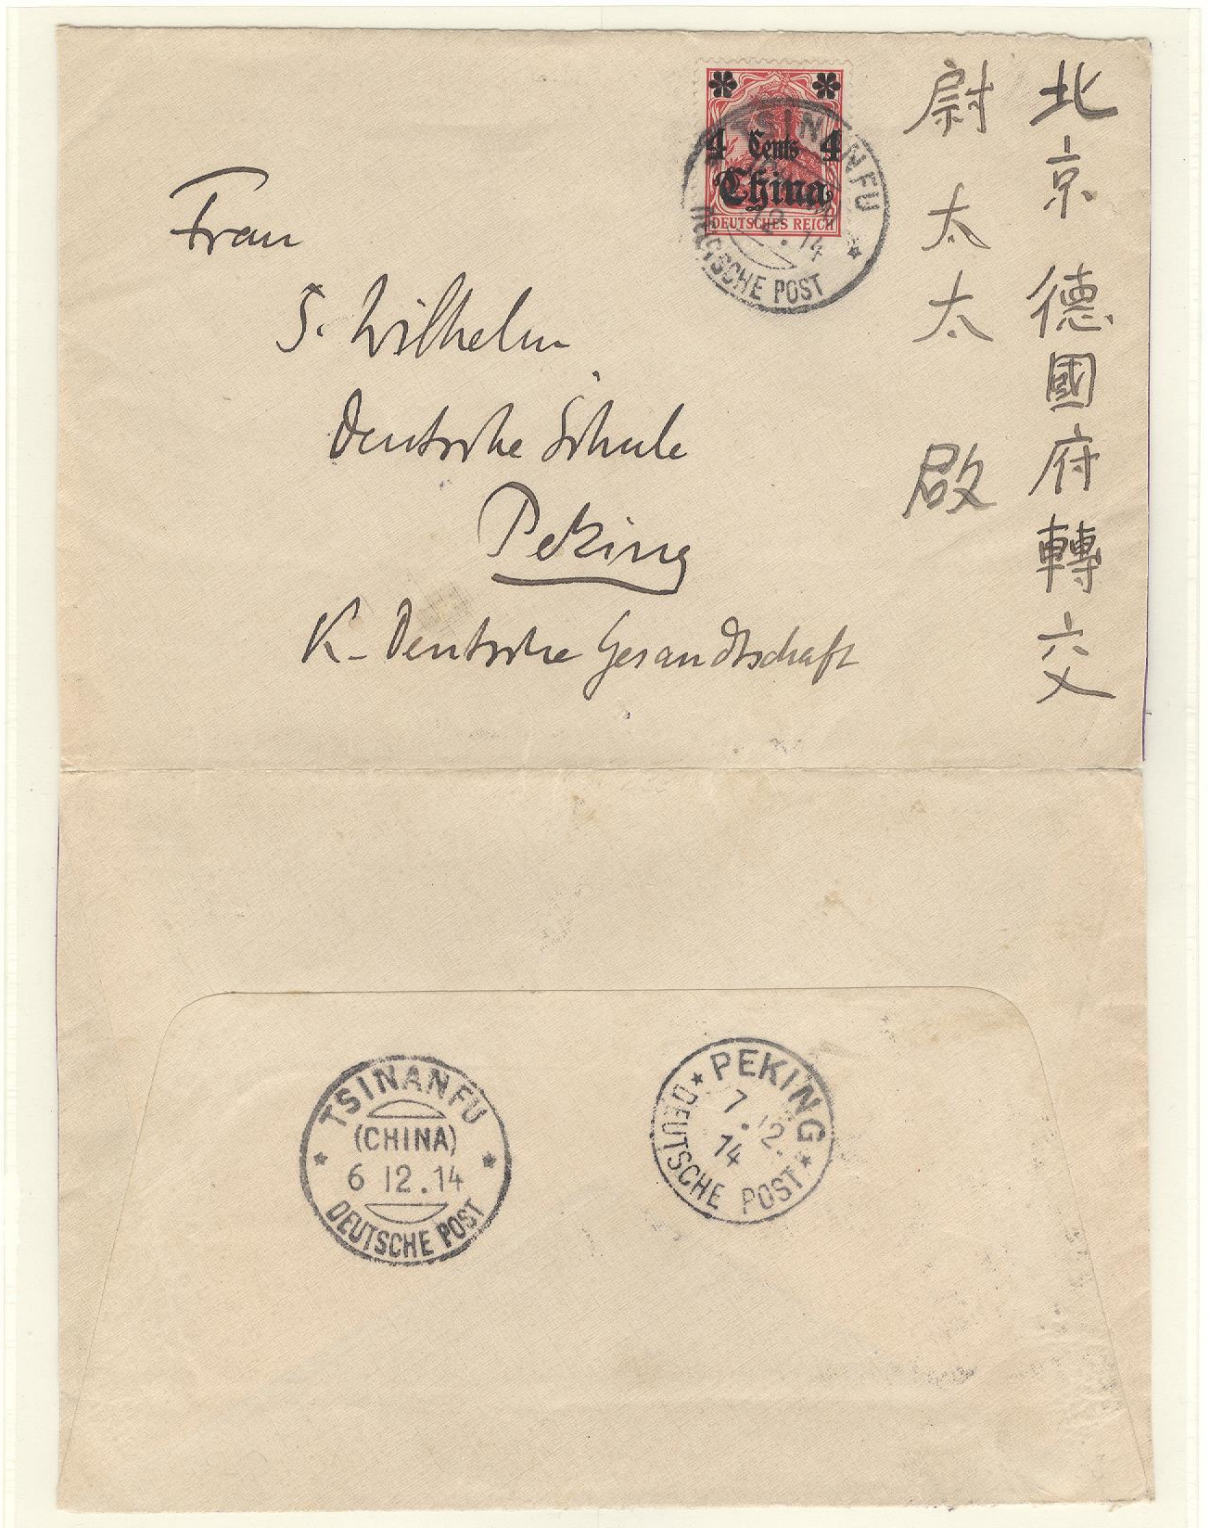 4 Cents 4
China
DEUTSCHES REICH
TSINANFU
12.14
DEUTSCHE POST
北京德國府轉交
尉太太 啟
Frau
S. Wilhelm
Deutsche Schule
Peking
K. Deutsche Gesandtschaft
TSINANFU
(CHINA)
6 12.14
DEUTSCHE POST
PEKING
7.12.
14
DEUTSCHE POST